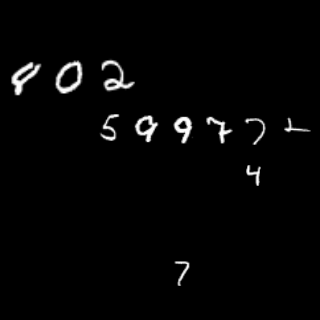 802
59977
4
7